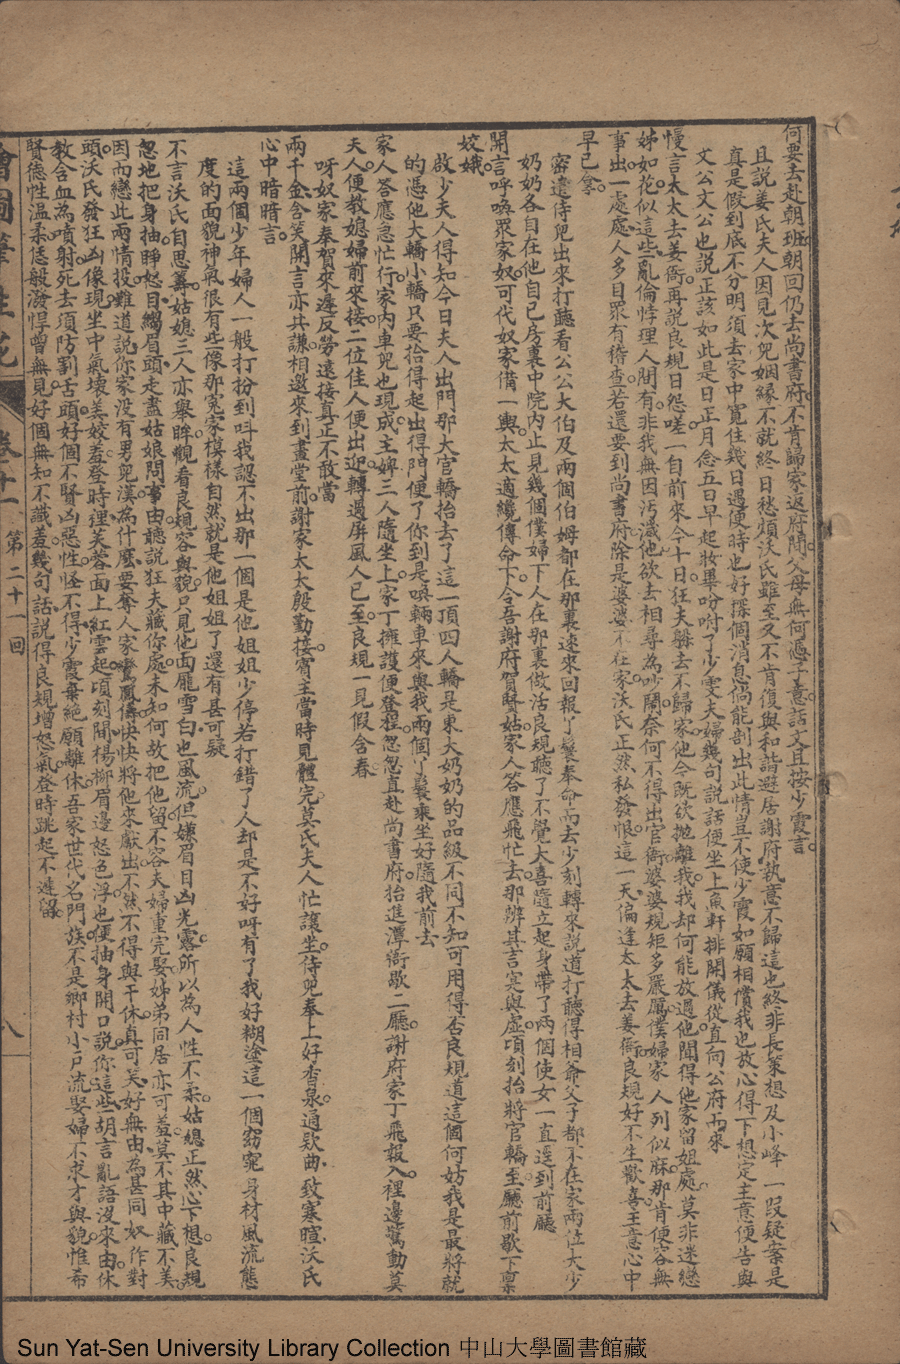 何要去赴朝班朝回仍去尚書府不肯歸家返府閒父母無何過子意話文且按少霞言
且説姜氏夫人因見次兒姻緣不就終日愁煩沃氏雖至又不肯復與和諧避居謝府執意不歸這也終非長策想及小峰一段疑案是
真是假到底不分明須去家中寬住幾日遇便時也好探個消息倘能剖出此情豈不使少霞如願相償我也放心得下想定主意便告與
文公文公也説正該如此是日正月念五日早起妝畢吩咐了少雯夫婦幾句説話便坐上魚軒排開儀從直向公府而來
慢言太太去姜衙再説良規日怨嗟一自前來今十日狂夫躲去不歸家他今既欲拋離我我却何能放過他聞得他家留姐處莫非迷戀
姊如花似這些亂倫悖理人間有非我無因汚衊他欲去相尋為吵鬧奈何不得出官衙婆婆規矩多嚴厲僕婦家人列似麻那肯便容無
事出一處處人多目眾有稽查若還要到尚書府除是婆婆不在家沃氏正然私發恨這一天偏逢太太去姜衙良規好不生歡喜主意心中
早已拿
密遣侍兒出來打聽看公公大伯及兩個伯姆都在那裏速來回報丫鬟奉命而去少刻轉來説道打聽得相爺父子都不在家兩位大少
奶奶各自在他自己房裏中院內止見幾個僕婦下人在那裏做活良規聽了不覺大喜隨立起身帶了兩個使女一直逕到前廳
開言呼喚眾家奴可代奴家備一輿太太適纔傳命下令吾謝府賀賢姑家人答應飛忙去那辨其言寔與虛頃刻抬將官轎至廳前歇下禀
姣娥
啟少夫人得知今日夫人出門那大官轎抬去了這一頂四人轎是東大奶奶的品級不同不知可用得否良規道這個何妨我是最將就
的憑他大轎小轎只要抬得起出得門便了你到是喚輛車來與我兩個丫鬟乘坐好隨我前去
家人答應急忙行家內車兒也現成主婢三人隨坐上家丁擁護便登程忽忽直赴尚書府抬進潭衙歇二廳謝府家丁飛報入裡邊驚動莫
夫人便教媳婦前來接二位佳人便出迎轉過屏風人已至良規一見假含春
呀奴家奉賀來遲反勞遠接真正不敢當
兩千金含笑開言亦共謙相邀來到畫堂前謝家太太殷勤接賓主當時見體完莫氏夫人忙讓坐侍兒奉上好杳泉通欵曲致寒暄沃氏
心中暗暗言
這兩個少年婦人一般打扮到呌我認不出那一個是他姐姐少停若打錯了人却是不好呀有了我好糊塗這一個窈窕身材風流態
度的面貌神氣很有些像那冤家模樣自然就是他姐姐了還有甚可疑
不言沃氏自思籌姑媳三人亦舉眸觀看良規容與貌只見他面龐雪白也風流但嫌眉目凶光露所以為人性不柔姑媳正然心下想良規
忽地把身抽睜怒目縐眉頭走盡姑娘問事由聽説狂夫藏你處未知何故把他留不容夫婦重完娶姊弟同居亦可羞莫不其中藏不美
因而戀此兩情投難道説你家没有男兒漢為什麽要奪人家鸞鳳儔快快將他來獻出不然不得與干休真可笑好無由為甚同奴作對
頭沃氏發狂凶像現坐中氣壞姜姣羞登時裡芙蓉面上紅雲起頃刻間楊柳眉邊怒色浮也便抽身開口説你這些胡言亂語沒來由休
教含血為噴射死去須防割舌頭好個不賢凶惡性怪不得少霞棄絶願離休吾家世代名門族不是鄉村小戸流娶婦不求才與貌惟希
賢德性溫柔恁般潑悍曾無見好個無知不識羞幾句話説得良規增怒氣登時跳起不遲留
繪圖筆生花 卷十一 第二十一回 八
Sun Yat-Sen University Library Collection 中山大學圖書館藏